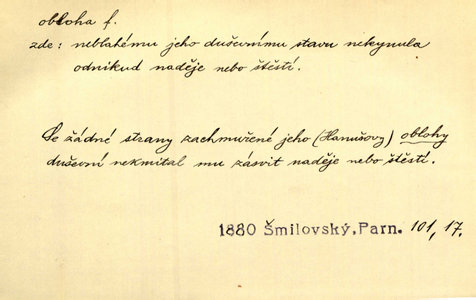 obloha f.
zde: neblahému jeho duševnímu stavu nekynula
odnikud naděje nebo štěstí.
Se žádné strany zachmuřené jeho (Hanušovy) oblohy
duševní nekmital mu zásvit naděje nebo štěstí.
1880 Šmilovský, Parn. 101, 17.